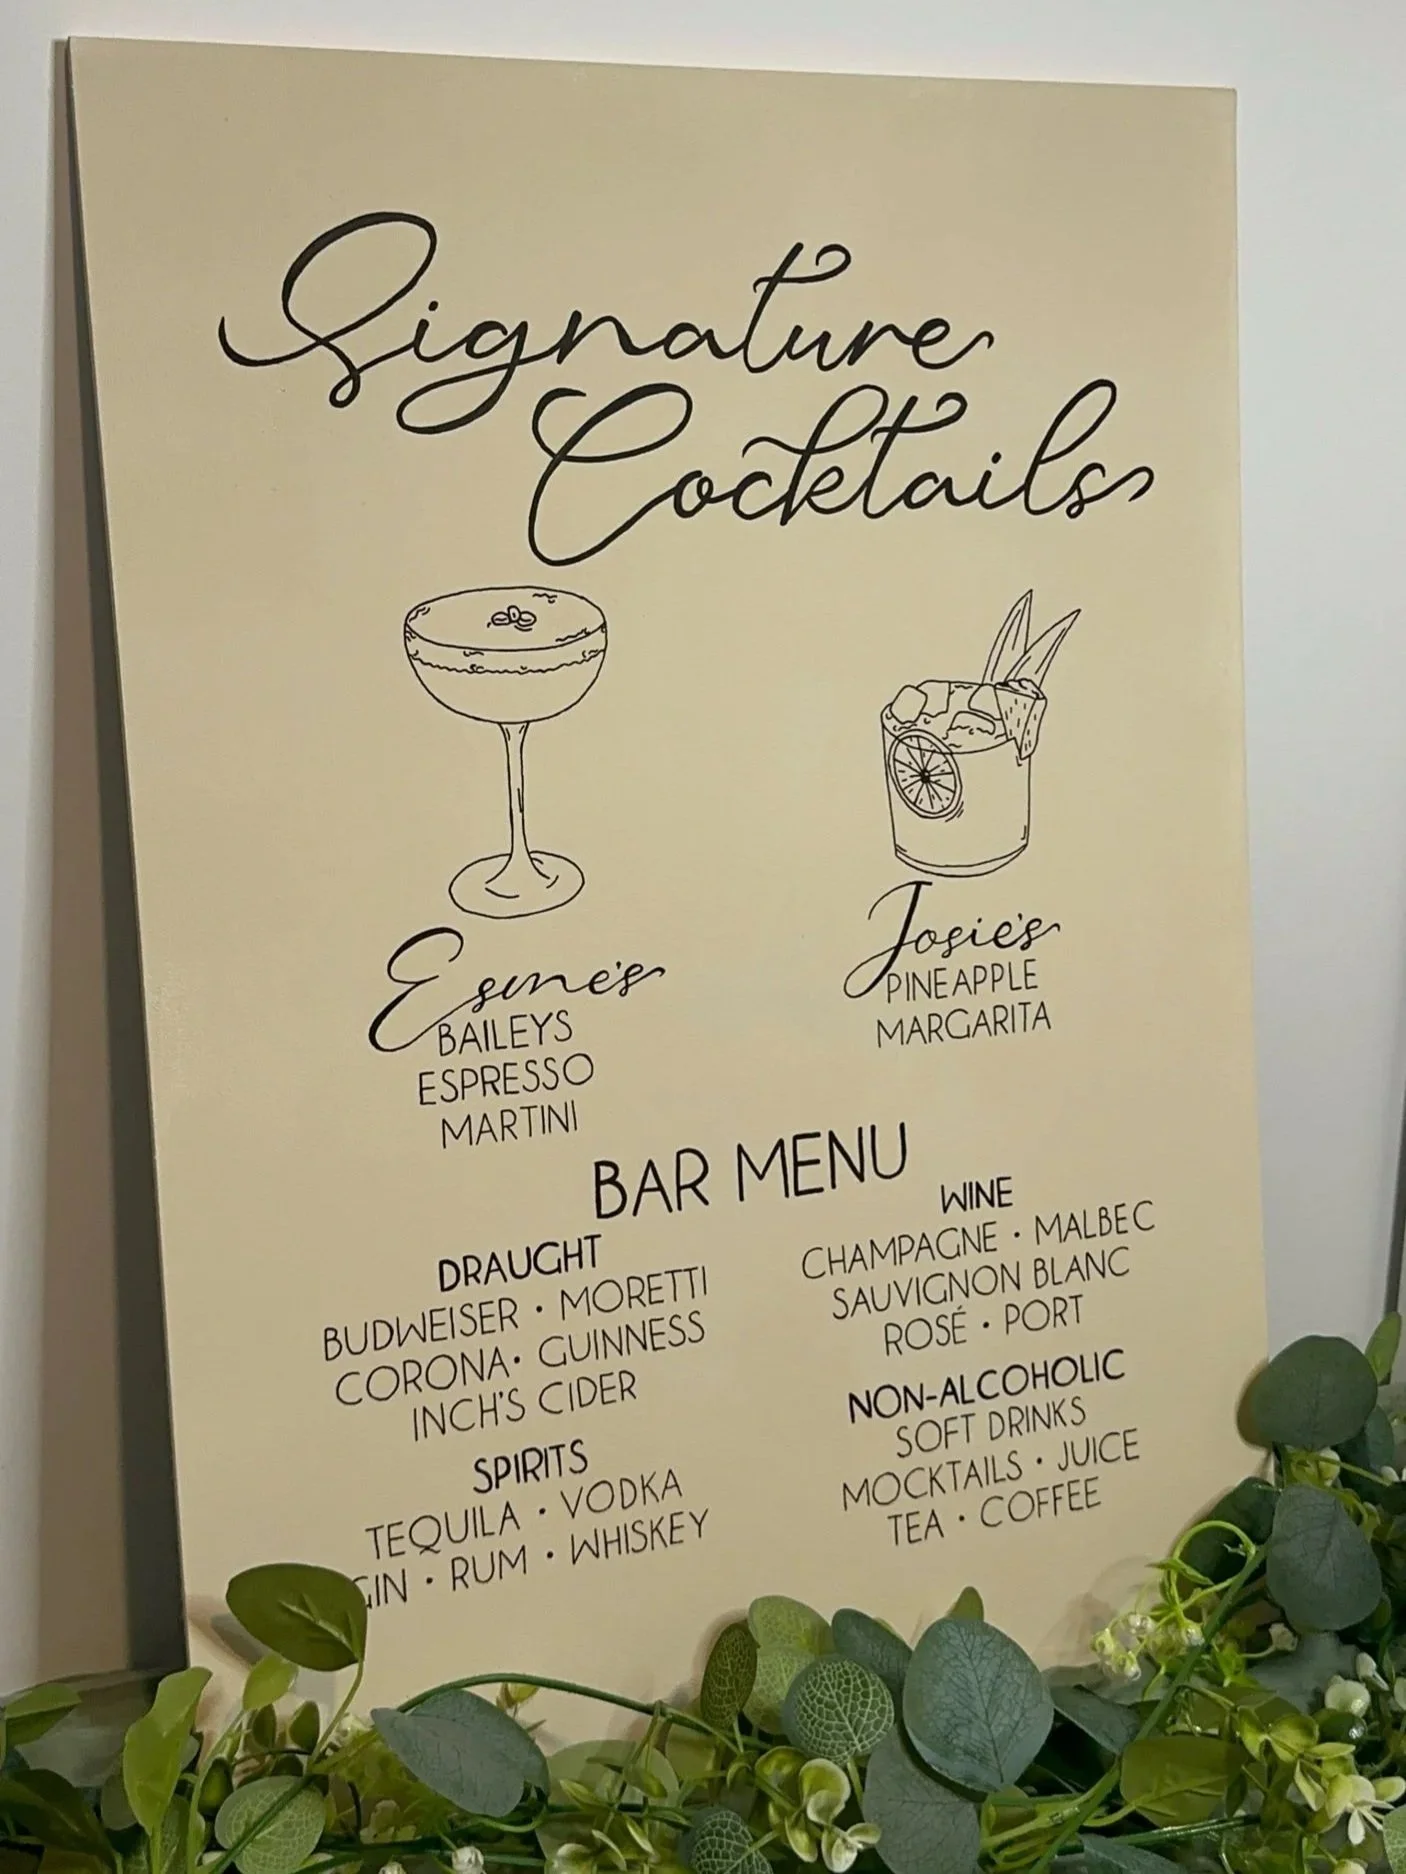 Signature
Cocktails
Esme's
BAILEYS
ESPRESSO
MARTINI
Josie's
PINEAPPLE
MARGARITA
BAR MENU
DRAUGHT
BUDWEISER • MORETTI
CORONA • GUINNESS
INCH'S CIDER
SPIRITS
TEQUILA • VODKA
GIN • RUM • WHISKEY
WINE
CHAMPAGNE • MALBEC
SAUVIGNON BLANC
ROSÉ • PORT
NON-ALCOHOLIC
SOFT DRINKS
MOCKTAILS • JUICE
TEA • COFFEE